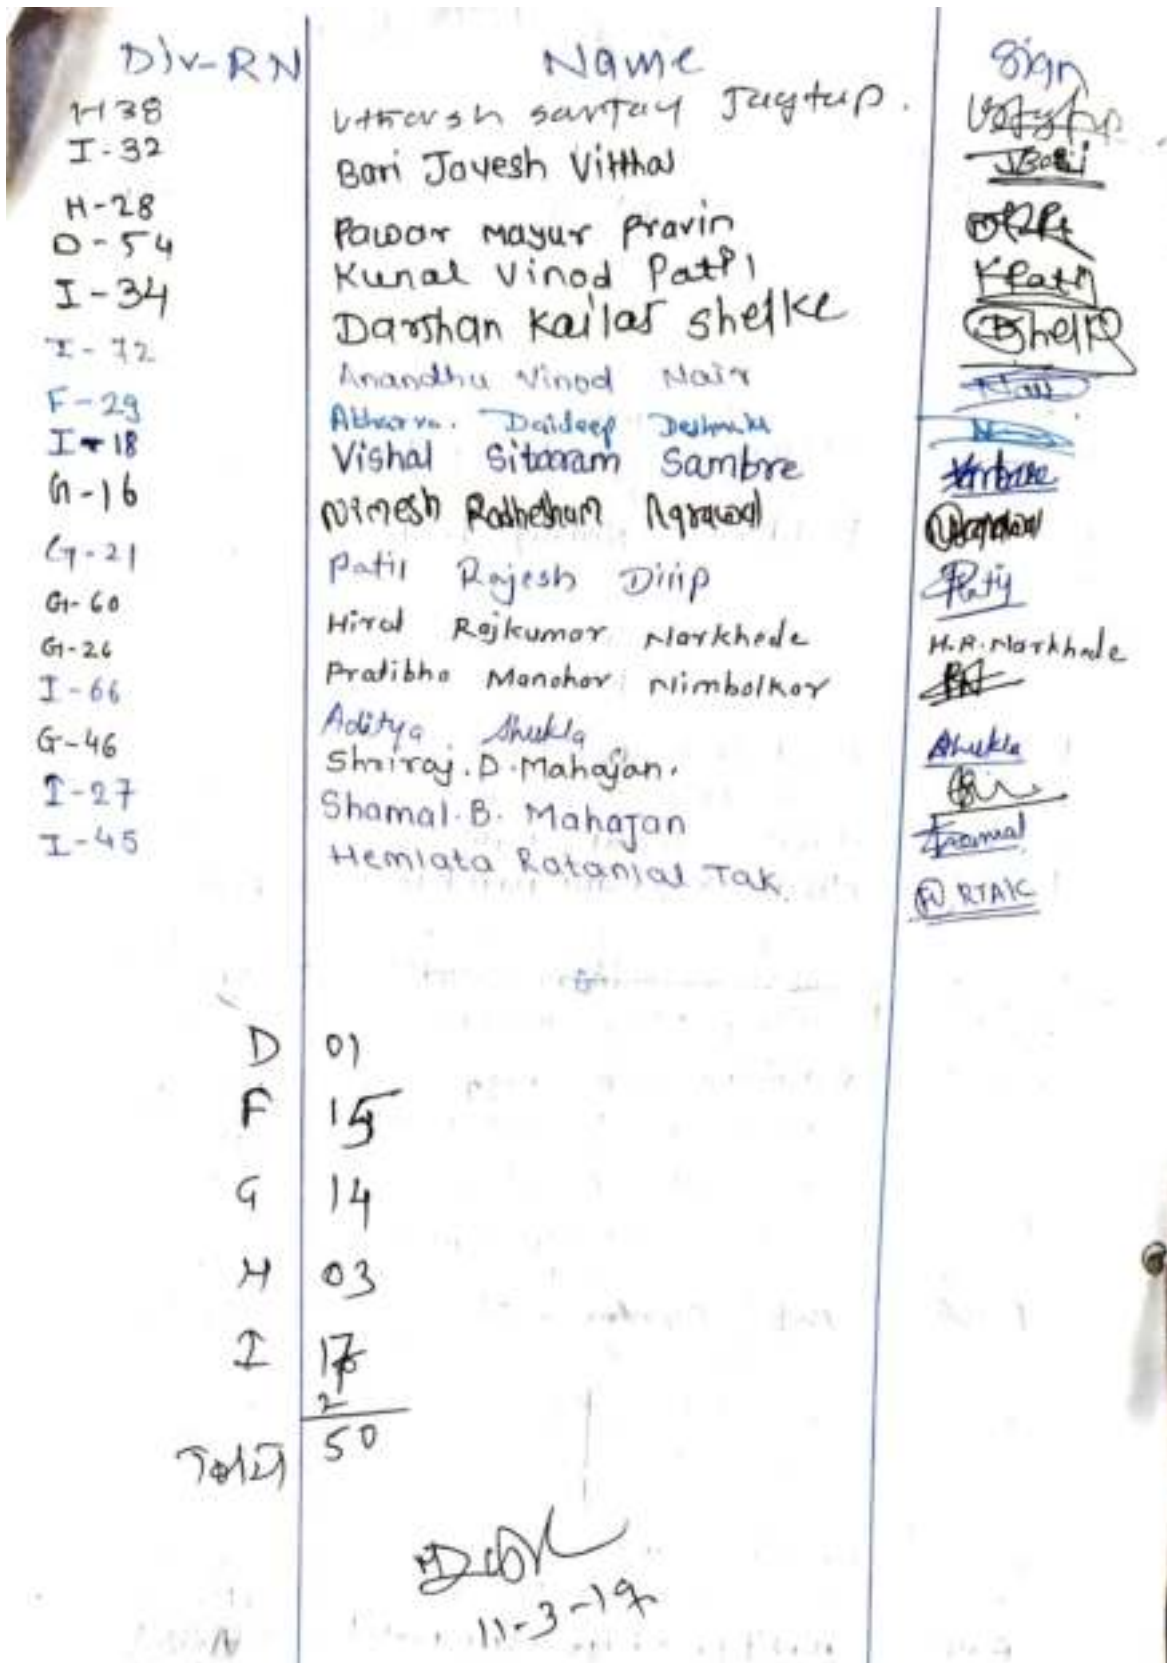 Div-RN Name Sign
H 38 Utkarsh Sanjay Jagtap.
I-32 Bari Jayesh Vitthal JBari
H-28 Pawar Mayur Pravin
D-54 Kunal Vinod Patil KPatil
I-34 Darshan Kailas Shelke DShelke
I-72 Anandhu Vinod Nair Nair
F-29 Atharva. Daideep Deshmukh
I-18 Vishal Sitaram Sambre
G-16 Nimesh Radhesham Agrawal
G-21 Patil Rajesh Dilip Patil
G-60 Hiral Rajkumar Narkhede H.R.Narkhede
G-26 Pratibha Manohar Nimbalkar
I-66 Aditya Shukla Shukla
G-46 Shriraj.D.Mahajan.
I-27 Shamal.B. Mahajan
I-45 Hemlata Ratanlal Tak. RTAK
D 01
F 15
G 14
H 03
I 17
2
Total 50
11-3-19